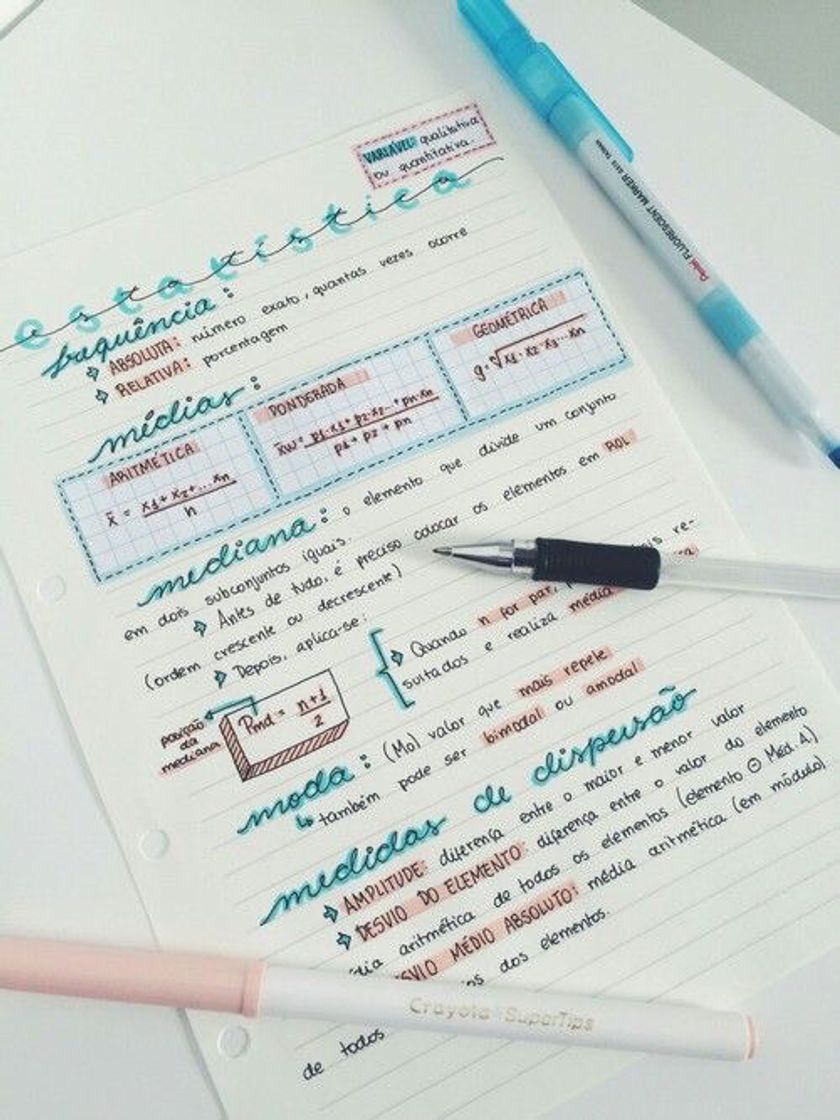 VARIÁVEL: qualitativa
ou quantitativa.
estatística
frequência:
ABSOLUTA: número exato, quantas vezes ocorre
RELATIVA: porcentagem
médias:
ARITMÉTICA
x̄ = x1 + x2 + ... xn / n
PONDERADA
x̄w = p1·x1 + p2·x2... + pn·xn / p1 + p2 + pn
GEOMÉTRICA
g = ⁿ√x1·x2·x3...xn
mediana: o elemento que divide um conjunto
em dois subconjuntos iguais.
Antes de tudo, é preciso colocar os elementos em ROL
(ordem crescente ou decrescente)
Depois, aplica-se:
posição
da
mediana
Pmd = n+1 / 2
Quando n for par, re-
sultados e realiza média
moda: (Mo) valor que mais repete
também pode ser bimodal ou amodal
medidas de dispersão
AMPLITUDE: diferença entre o maior e menor valor
DESVIO DO ELEMENTO: diferença entre o valor do elemento
aritmética de todos os elementos (elemento ⊖ Méd. A)
MÉDIO ABSOLUTO: média aritmética (em módulo)
de todos dos elementos.
Pentel FLUORESCENT MARKER
Crayola SuperTips